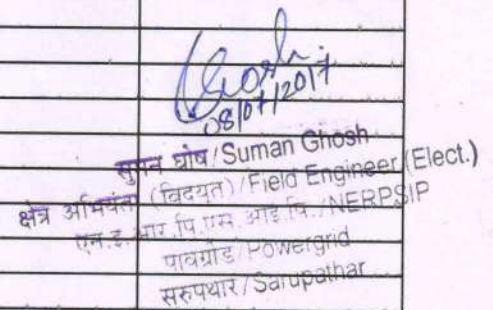 Ghosh
08/07/2017
सुमन घोष/Suman Ghosh
क्षेत्र अभियंता (विदयुत)/Field Engineer (Elect.)
एन.इ.आर.पि.एस.आई.पि./NERPSIP
पावग्रीड/Powergrid
सरुपथार/Sarupathar